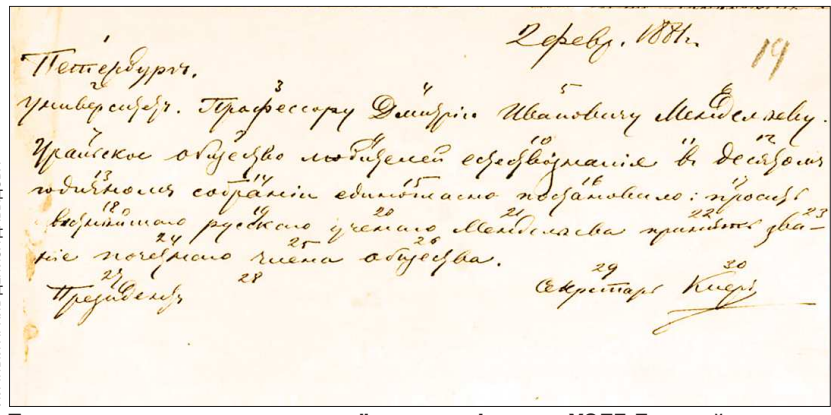 2 февр. 1881 г.
19
1
Петербургъ.
2 3 4 5 6
Университетъ. Профессору Дмитрію Ивановичу Менделѣеву.
7 8 9 10 11 12
Уральское общество любителей естествознанія въ десятомъ
13 14 15 16 17
годичномъ собраніи единогласно постановило: просить
18 19 20 21 22 23
русскаго ученаго Менделѣева принять зва-
24 25 26
ніе почетнаго члена общества.
27 28 29 30
Президентъ Секретарь